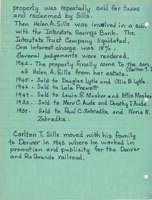 property was repeatedly sold for taxes
and redeemed by Sills.
Then Helen A. Sills was involved in a suit
with the Interstate Savings Bank. The
Interstate Trust Company liquidated.
One interest charge was 18%.
General judgements were rendered.
1942 - The property finally came to the
of Helen A. Sills from her estate.
1945 - Sold to Douglas Lytle and Ollie B Lytle.
1946 - Sold to Lela Prewett
1947 - Sold to Louis R. Mosher and Effie Mosher
1952 - Sold to Merv C. Aude and Dorothy I Aude
1955 - Sold to Paul C. Zebradka, and Nona M.
Zebradka.
Carlton T. Sills moved with his family
to Denver in 1925 where he worked in
promotion and publicity for the Denver
and Rio Grande railroad.